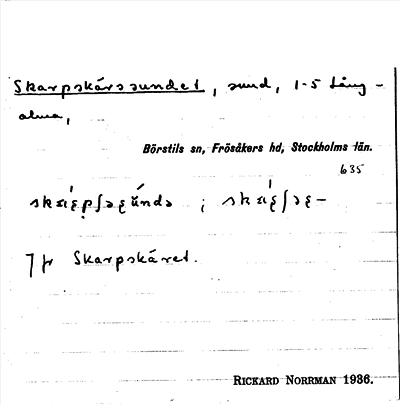 Skarpskärssundet, sund, 1-5 Lång-
alma,
Börstils sn, Frösåkers hd, Stockholms län.
635
Jfr Skarpskäret.
RICKARD NORRMAN 1936.